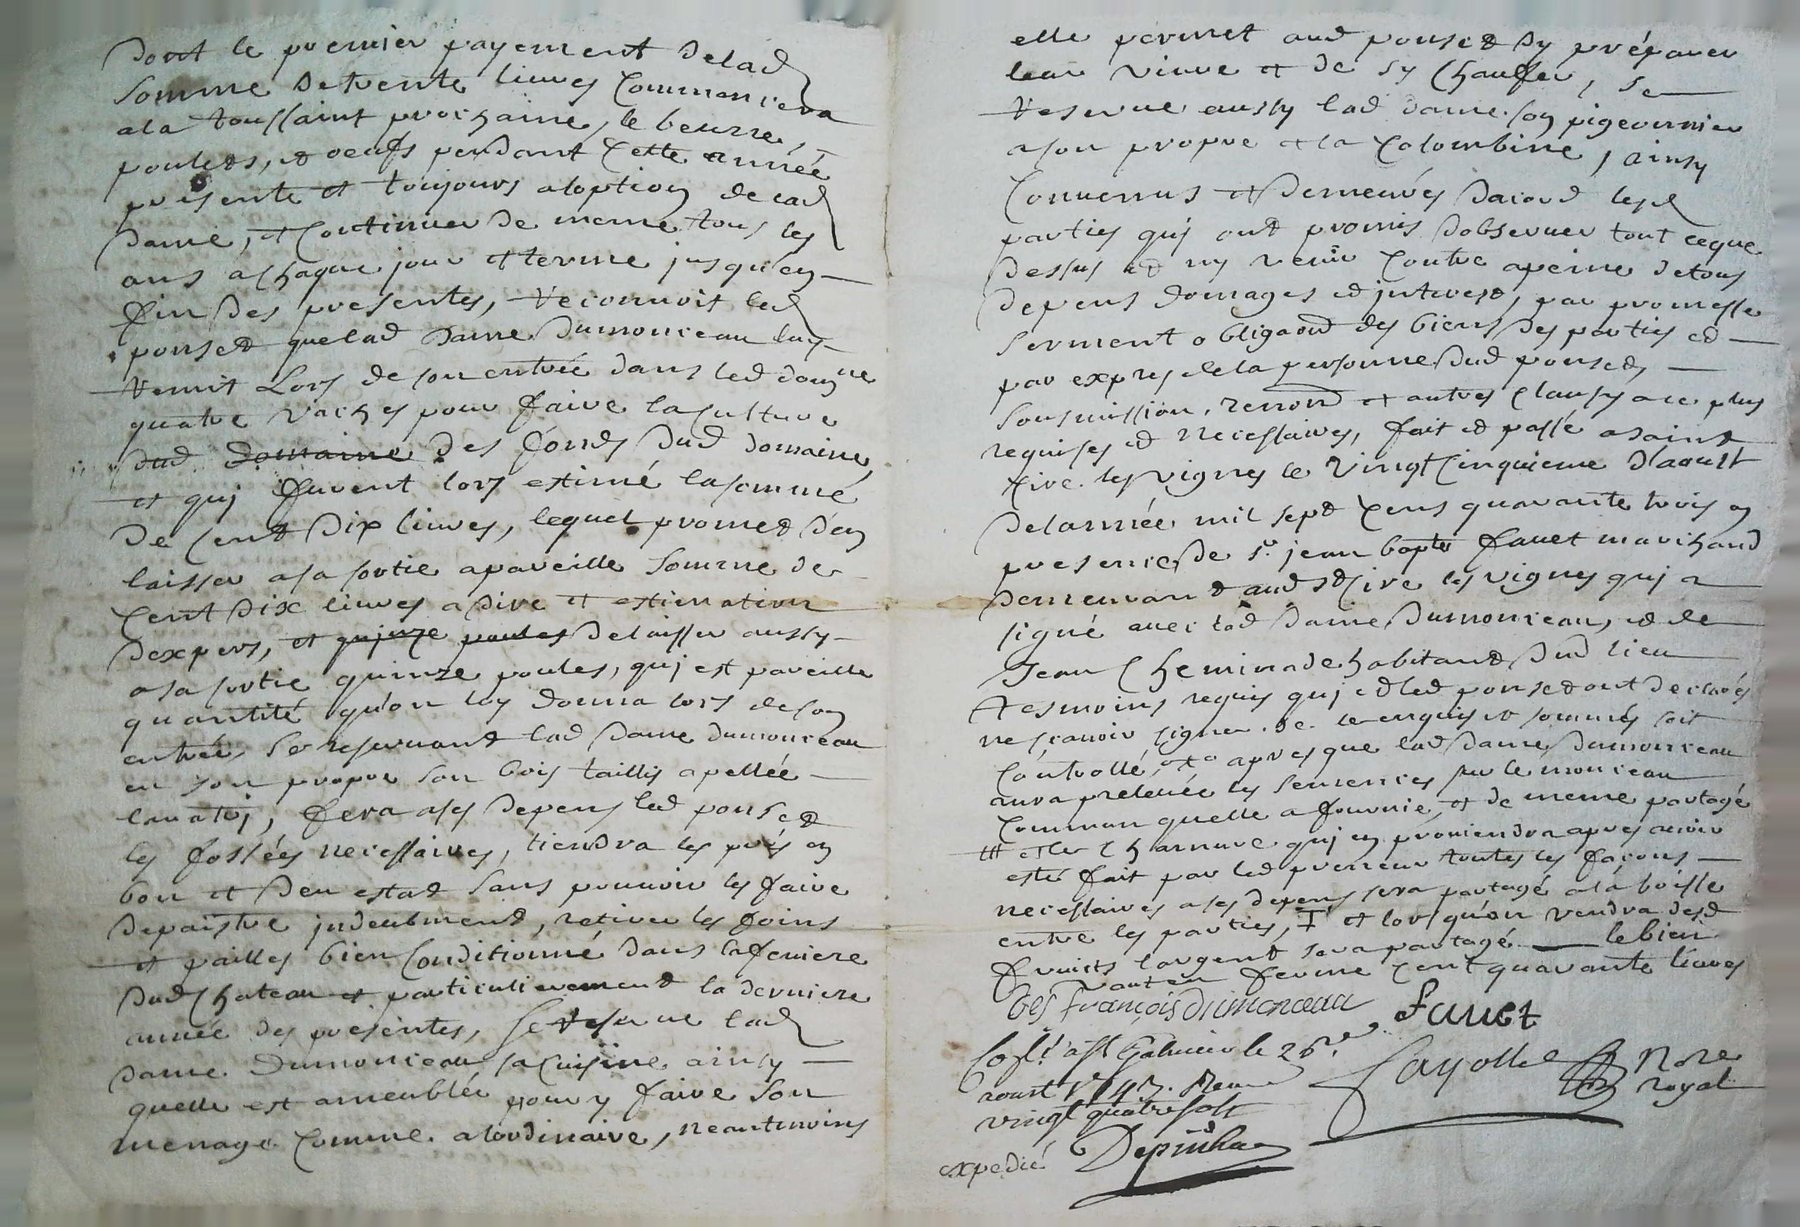 dont le premier payement de lad
somme de trente livres Commencera
a la toussaint prochaine, le beurre,
poulets, et oeufs pendant cette année
présente et toujours a loption de lad
dame, et Continuer de meme tous les
ans à chaque jour et terme jusqu'en
fin des presentes, Reconnoit led
ponset que lad dame dumonceau luy
Remit Lors de son entrée dans led domne
quatre vaches pour faire la culture
dud domaine des fonds dud domaine,
et qui furent lors estimé la somme
de Cent dix livres, lequel promet d'en
laisser a sa sortie a pareille somme de
Cent dix livres a dire et estimation
dexpers, et quinze poules delaisser aussy
a sa sortie quinze poules, qui est pareille
quantité qu'on luy donna lors de son
entrée, se reservant lad dame dumonceau
en son propre son bois taillis apellée
fera a ses depens led ponset
les fossées necessaires, tiendra les prés en
bon et deu estat sans pouvoir les faire
depaistre indeubment, retirer les foins
et pailles bien Conditionné dans la feniere
dud Chateau et particulierement la derniere
année des présentes, se reserve lad
dame Dumonceau sa cuisine ainsy
quelle est ameublée pour y faire son
menage Comme a lordinaire, neantmoins
elle permet aud ponset dy préparer
leur vivre et de sy Chauffer, se
reserve aussy lad dame son pigeonnier
a son propre et la Colombine, ainsy
Convenus et demeurés dacord lesd
parties qui ont promis dobserver tout ceque
dessus et ny venir Contre a peine de tous
depens domages et interest, par promesse
serment obligaond des biens des parties et
par expres de la personne dud ponset,
sousmission, renond et autres Clauses a ce plus
requises et necessaires, fait et passé a saint
Cire les vignes le vingt Cinquieme d'aoust
de lannée mil sept Cens quarante trois en
presence de sr. jean bapte fauet marchand
demeurant aud st Cire les vignes qui a
signé avec lad dame Dumonceau, et de
Jean Cheminade habitant dud lieu
tesmoins requis qui et led ponset ont declarés
ne scavoir signer de ce enquis et sommés soit
Controllé, apres que lad dame Dumonceau
aura prelevée les semences sur le monceau
Commun quelle a fournie, et de meme partagé
et le Chanvre qui en proviendra apres avoir
esté fait par led preneur toutes les façons
necessaires a ses depens sera partagé a la
entre les parties, et lors qu'on vendra desd
fruits largent sera partagé le bien
vaut en ferme Cent quarante livres
françois dumonceau fauet
a st Galmier le 26
aoust 1743. Reçu
vingt quatre sols
Fayolle Nore
royal
expedié